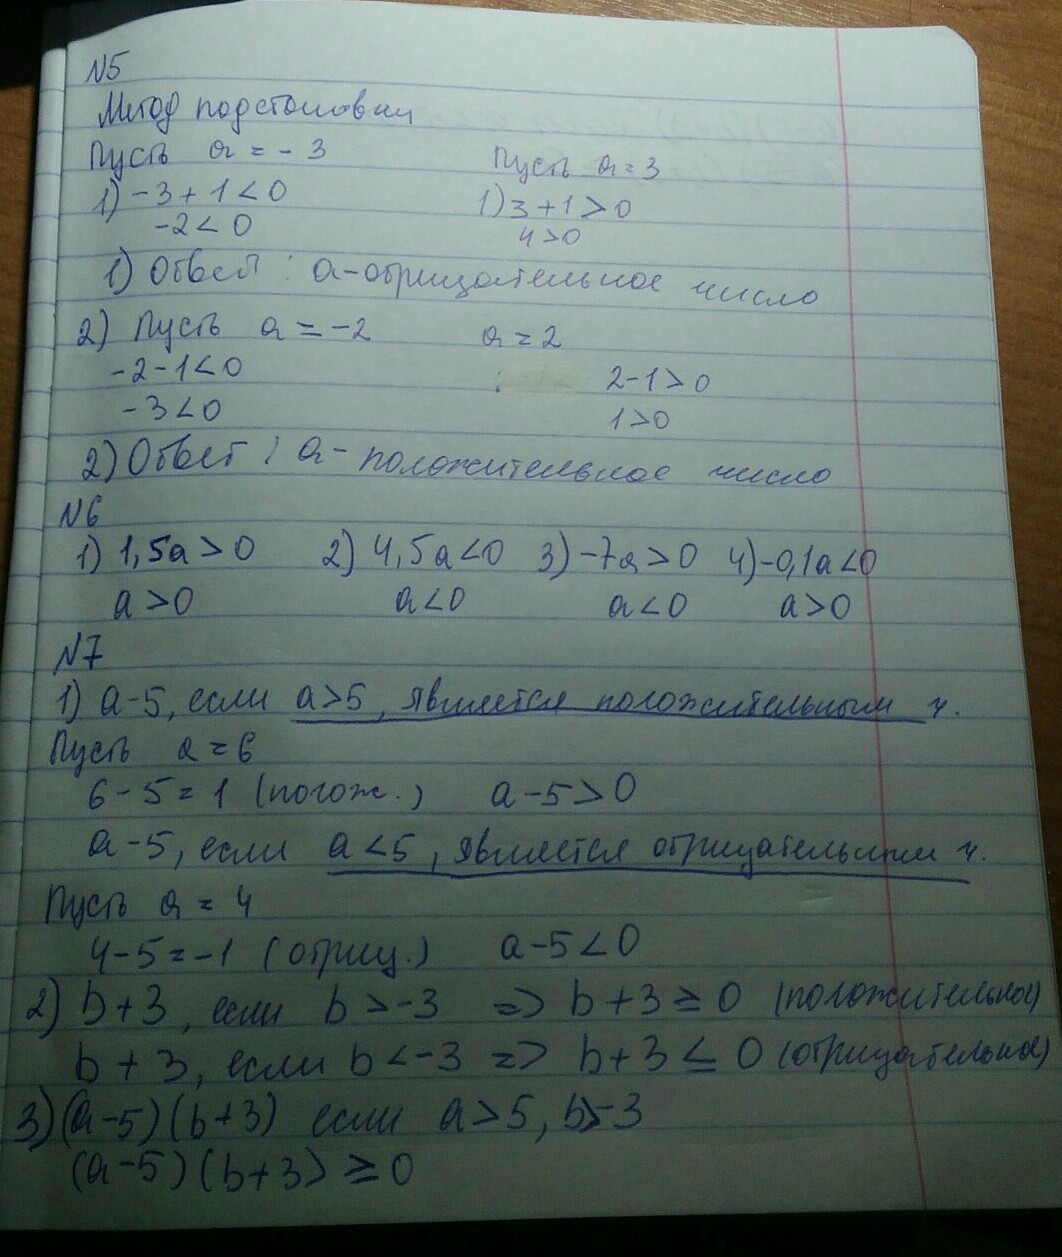 N5
Метод подстановки
Пусть a = - 3 Пусть a = 3
1) -3 + 1 < 0 1) 3 + 1 > 0
-2 < 0 4 > 0
1) Ответ : a - отрицательное число
2) Пусть a = -2 a = 2
-2-1<0 2-1>0
-3<0 1>0
2) Ответ : a - положительное число
N6
1) 1,5a > 0 2) 4,5a < 0 3) -7a > 0 4) -0,1a < 0
a > 0 a < 0 a < 0 a > 0
N7
1) a-5, если a>5, является положительным ч.
Пусть a = 6
6 - 5 = 1 (полож.) a - 5 > 0
a-5, если a < 5, является отрицательным ч.
Пусть a = 4
4-5=-1 (отриц.) a-5<0
2) b+3, если b > -3 => b+3 ≥ 0 (положительное)
b + 3, если b < -3 => b+3 ≤ 0 (отрицательное)
3) (a-5)(b+3) если a > 5, b>-3
(a-5)(b+3) ≥ 0